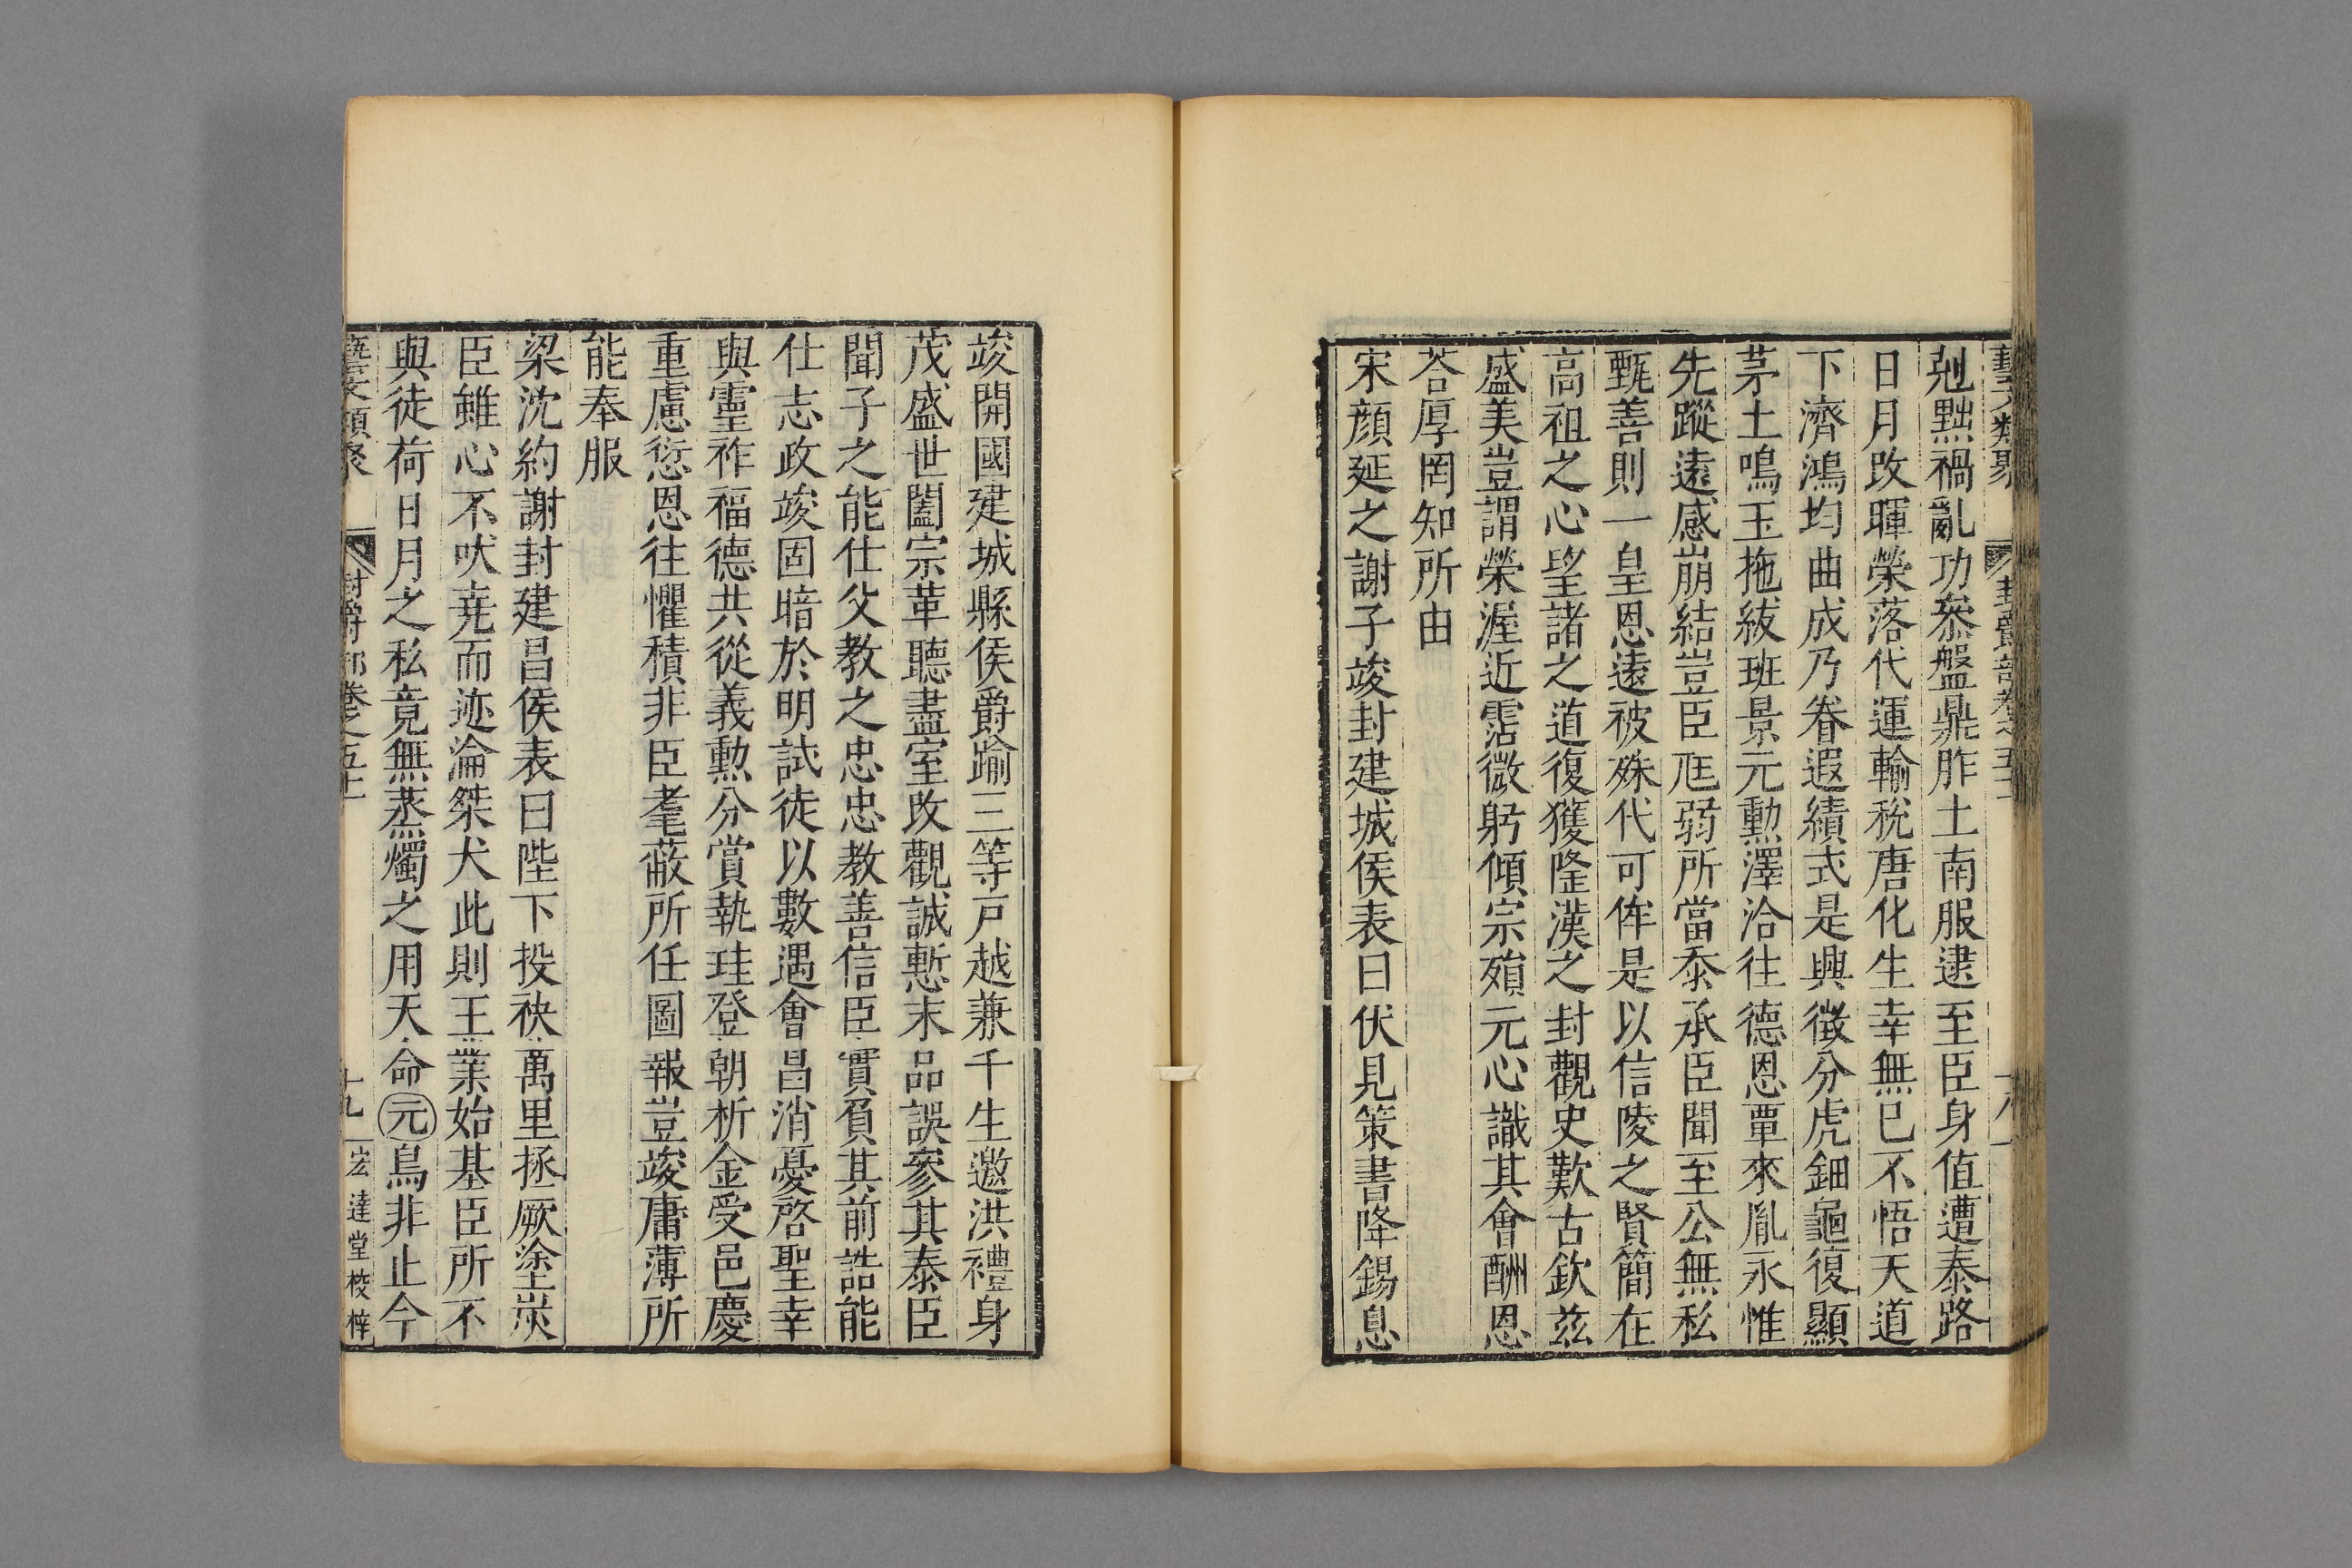 剋黜禍亂功叅盤鼎胙土南服逮至臣身值遭泰路
日月改暉榮落代運輸稅唐化生幸無已不悟天道
下濟鴻均曲成乃眷遐績式是興徵分虎鈿龜復顯
茅土鳴玉拖紱班景元勳澤洽往德恩覃來胤永惟
先蹤遠感崩結豈臣尫弱所當忝承臣聞至公無私
甄善則一皇恩遠被殊代可侔是以信陵之賢簡在
高祖之心望諸之道復獲隆漢之封觀史歎古欽茲
盛美豈謂榮渥近霑微躬傾宗殞元心識其會酬恩
荅厚罔知所由
宋顏延之謝子竣封建城侯表曰伏見策書降錫息
竣開國建城縣侯爵踰三等戸越兼千生邀洪禮身
茂盛世闔宗革聽盡室改觀誠慙末品誤參其泰臣
聞子之能仕父教之忠忠教善信臣實負其前誥能
仕志政竣固暗於明試徒以數遇會昌消憂啓聖幸
與靈祚福德共從義勲分賞執珪登朝析金受邑慶
重慮愆恩往懼積非臣耄蔽所任圖報豈竣庸薄所
能奉服
梁沈約謝封建昌侯表曰陛下投袂萬里拯厥塗炭
臣雖心不吠堯而迹淪桀犬此則王業始基臣所不
與徒荷日月之私竟無蒸燭之用天命元鳥非止今
藝文類聚 封爵部卷之五十一 十九 宏達堂棱梓